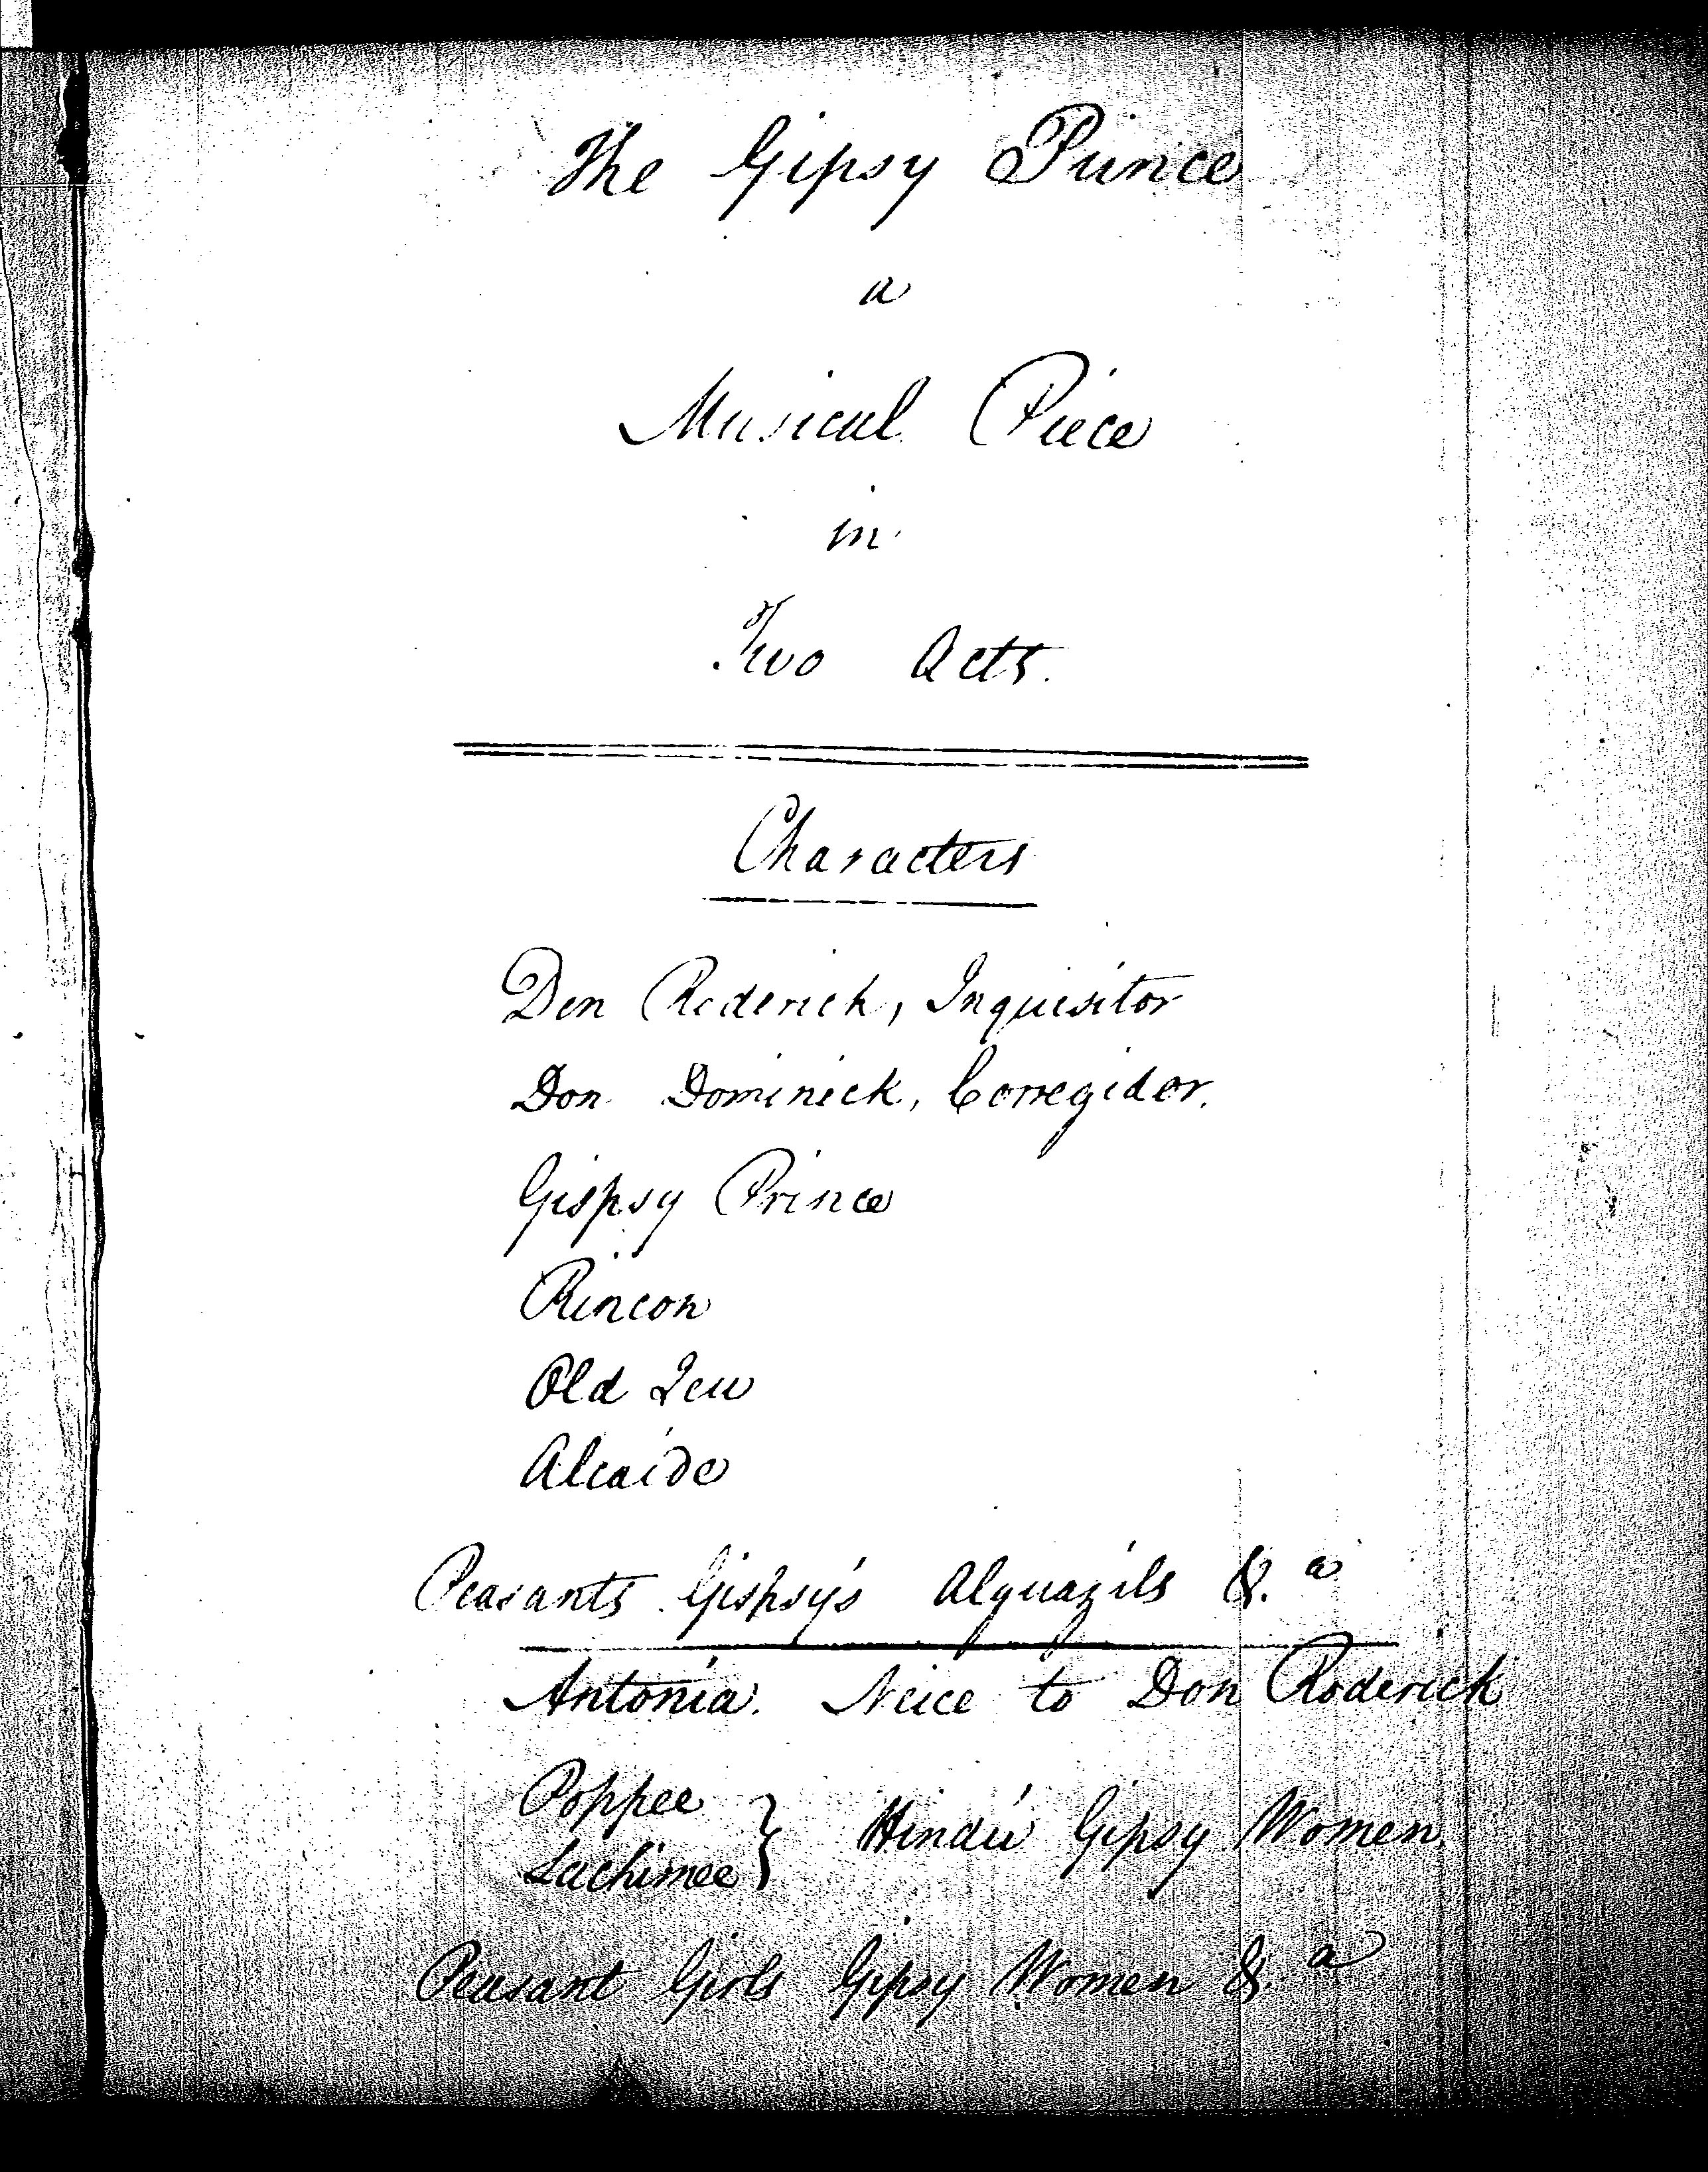 The Gipsy Prince
a
Musical Piece
in
Two Acts.
Characters
Don Roderick, Inquisitor
Don Dominick, Corregidor.
Gispsy Prince
Rincon
Old Jew
Alcaide
Peasants Gispsy's Alguazils &.a
Antonia. Neice to Don Roderick
Poppee
Lachimee } Hindú Gipsy Women
Peasant Girls Gipsy Women &.a